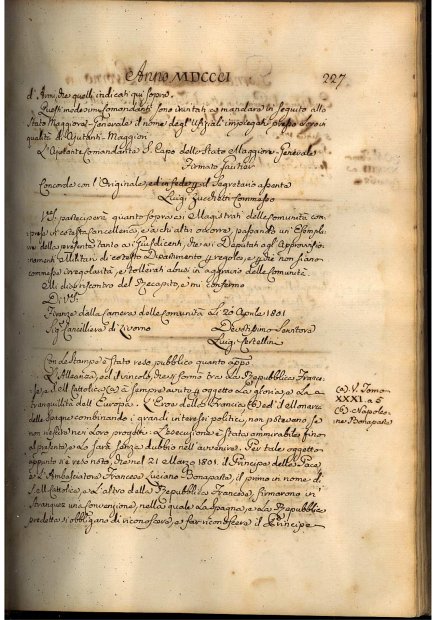 Anno MDCCCI
227
d'Armi, che quelli indicati qui sopra.
Questi medesimi Comandanti sono invitati a mandare in seguito allo
Stato Maggiore Generale il nome degl'Ufizial' impiegati presso in
qualità di Ajutanti Maggiori
L'Ajutante Comandante S. Capo dello Stato Maggiore Generale
Firmato Gautier
Concorde con l'Originale, ed in fede p. il Segretario assente
Luigi Zucchelli Commesso
V.S. parteciperà quanto sopra ai Magistrati delle Comunità com-
prese in cotesta Cancelleria, e a chi altri occorre, passando un Esempla-
re della presente tanto ai Giusdicenti, che ai Deputati agl'Approvisio-
namenti Militari di cotesto Dipartimento p. regola, e p. che non siano
commesse irregolarità, e tollerati abusi in aggravio delle Comunità.
Mi dia riscontro del Recapito, e mi confermo
Di V.S.
Firenze dalla Camera delle Comunità li 20 Aprile 1801
Sig. Cancelliere di Livorno
Devotissimo Servitore
Luigi
Con le Stampe è stato reso pubblico quanto appo
L'Alleanza, ed il vincolo, che si formò tra la Repubblica France-
se, e il Re Cattolico (a) à sempre avuto p. oggetto la gloria, e la
tranquillità dell'Europa. L'Eroe della Francia (b) ed il Monarca
delle Spagne combinando i grandi interessi politici, non potevano, se
non riescire nei loro progetti. L'esecuzione è stata ammirabile fino
al presente, e lo sarà senza dubbio nell'avvenire. Per tale oggetto
appunto si è reso noto, che nel 21 Marzo 1801. il Principe della Pace
e l'Ambasciatore Francese Luciano Bonaparte, il primo in nome di
S. M. Cattolica, e l'altro della Repubblica Francese, firmarono in
Aranquez una convenzione, nella quale la Spagna, e la Repubblica
predetta si obbligano di riconoscere, e far riconoscere il Principe
(a) V. Tomo
XXXI. a 5
(b) Napole-
one Bonaparte